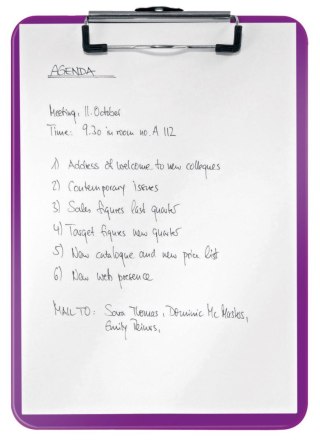 AGENDA
Meeting: 11. October
Time: 9.30 in room no. A 112
1) Address of welcome to new colleques
2) Contemporary Issues
3) Sales figures last quarter
4) Target figures new quarter
5) New catalogue and new price list
6) New web presence
MAIL TO: Sara Thomas, Dominic Mc
Emily